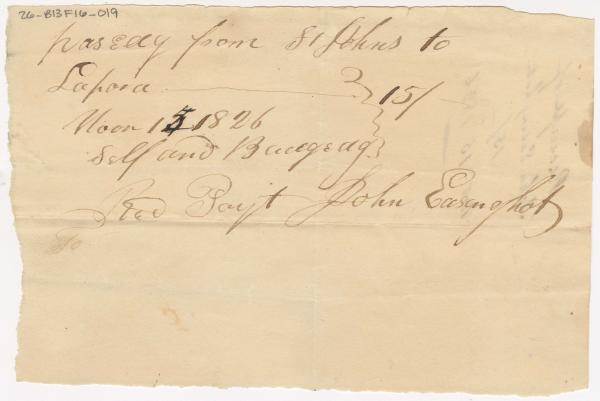 26-B13F16-019
pasedg from St Johns to
Lapora } 15/
Noon 13 1826
Self and Baugedg
Recd Payt John